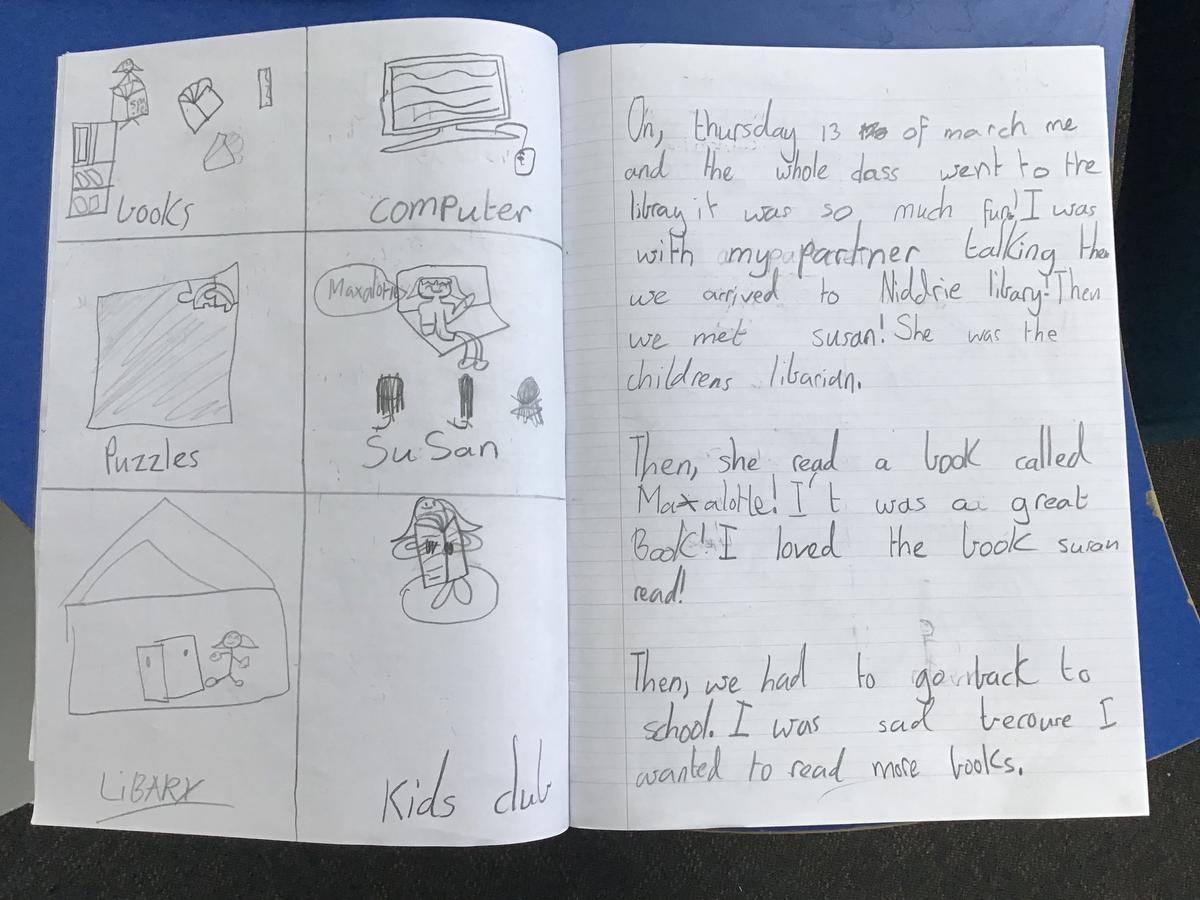 books
computer
Puzzles
Maxalotte
SuSan
LiBARY
Kids club
On, thursday 13 of march me
and the whole class went to the
libray it was so much fun! I was
with my partner talking then
we arrived to Niddrie libary! Then
we met susan! She was the
childrens libarian.
Then, she read a book called
Maxalotte! I't was a great
Book! I loved the book susan
read!
Then, we had to go back to
school. I was sad becouse I
wanted to read more books.